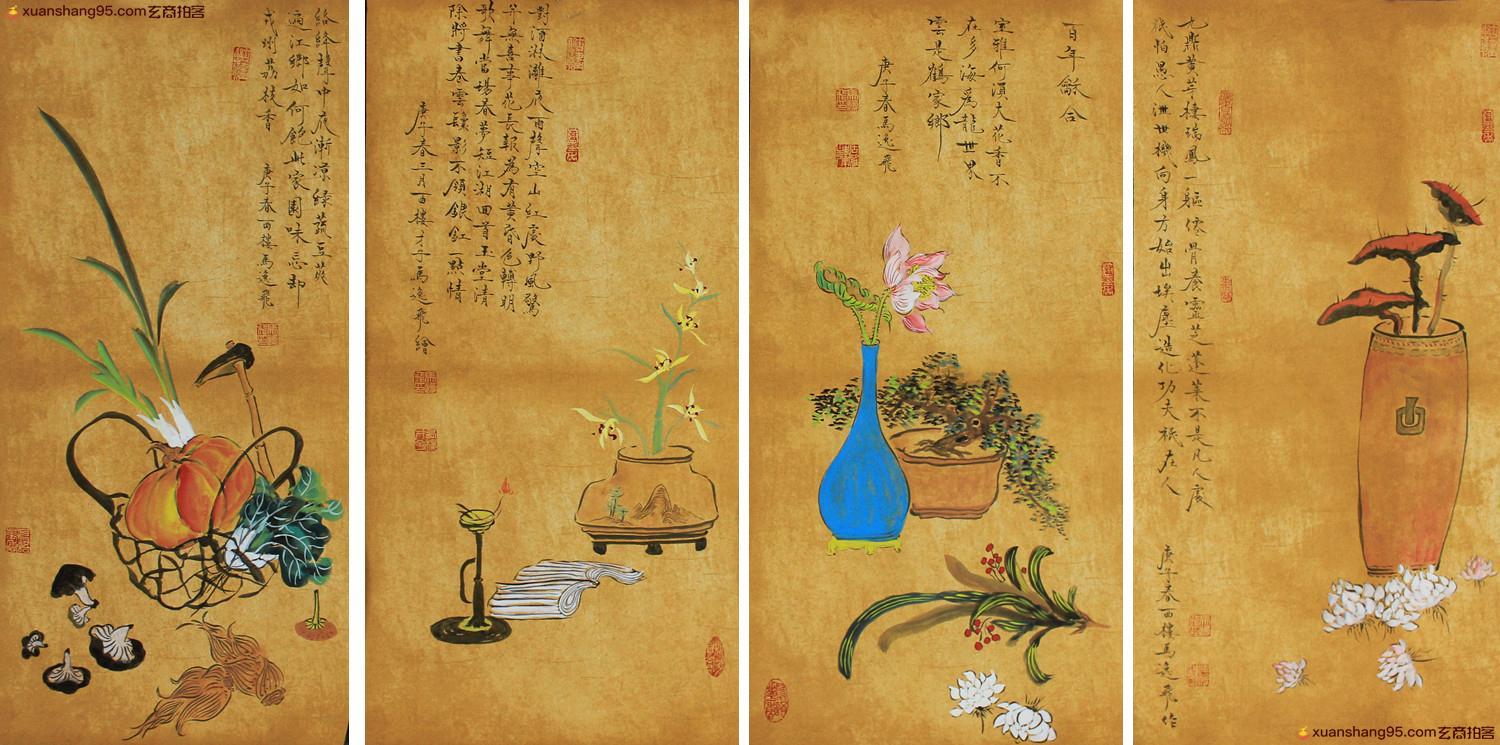 xuanshang95.com玄商拍客
絡緯聲中夜漸凉綠蔬豆莢
過江鄉如何飽此家園味忘却
戎州荔枝香
庚子春西樓馬逸飛
對酒淋灕夜雨聲空山紅處野風驚
并無喜事花長報為有黄昏色轉明
歌舞當場春夢短江湖回首玉堂清
除將書卷雲鬟影不領銀釭一點情
庚子春三月西樓才子馬逸飛繪
百年龢合
室雅何須大花香不
在多海為龍世界
雲是鶴家鄉
庚子春馬逸飛
九鼎黄芽棲瑞鳳一軀僊骨養靈芝蓬萊不是凡人處
祇怕愚人泄世機向身方始出埃塵造化功夫祇在人
庚子春西樓馬逸飛作
xuanshang95.com玄商拍客